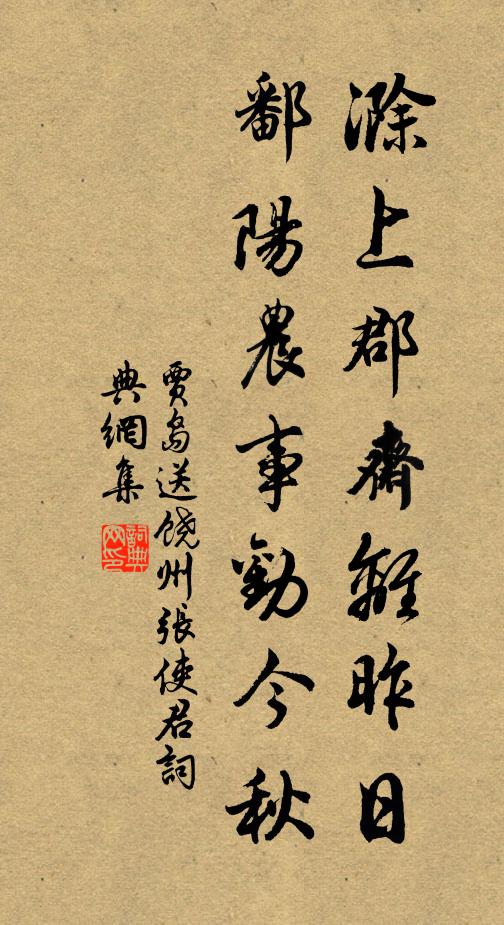 滁上郡齋離昨日
鄱陽農事勸今秋
賈島送饒州張使君詞
典網集
詞典网印